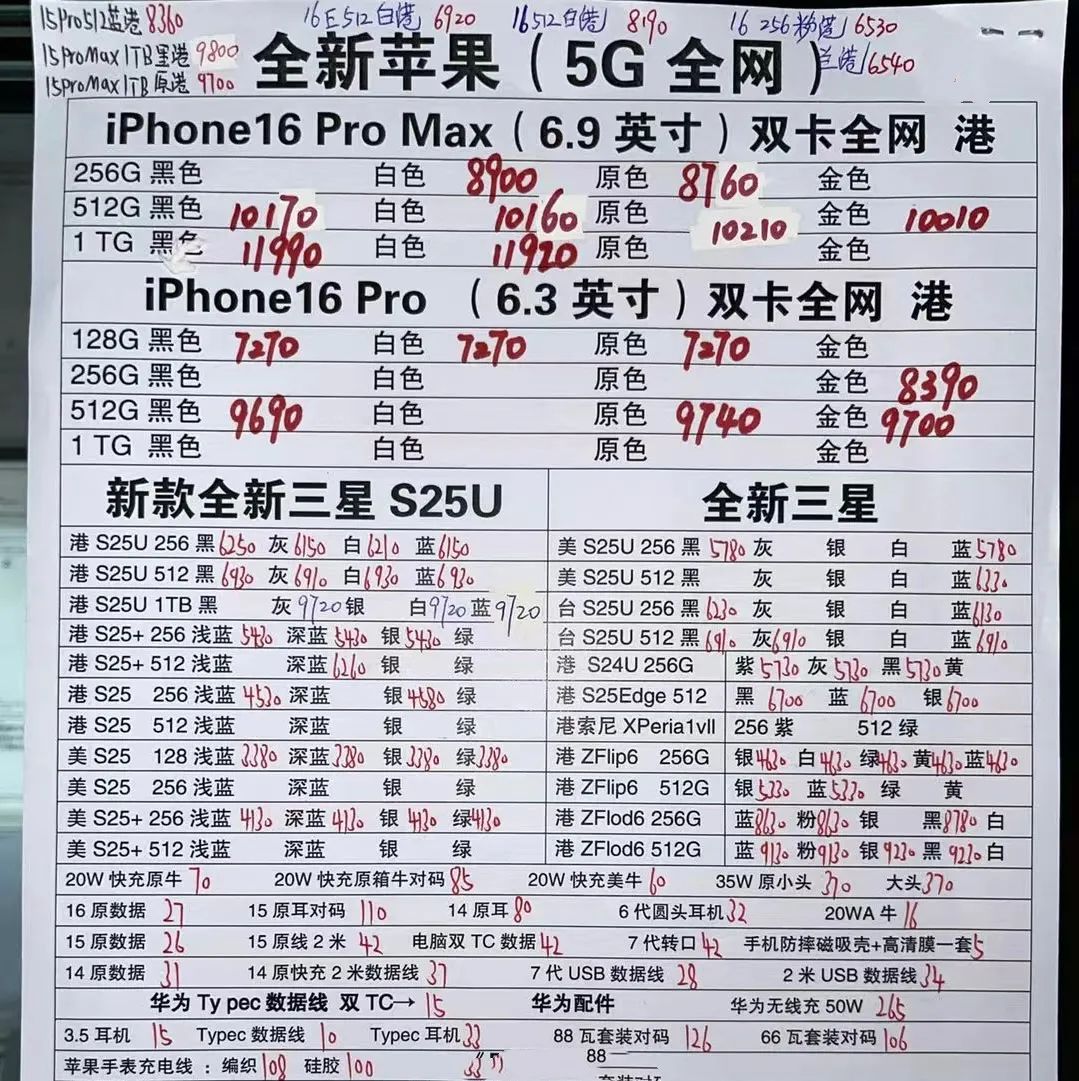 15Pro512蓝港 8360 16E512白港 6920 16 512白港 8190 16 256粉港 6530
15ProMax1TB黑港 9800 兰港 6540
15ProMax1TB原港 9700
全新苹果（5G 全网）
iPhone16 Pro Max（6.9 英寸）双卡全网 港
256G 黑色 白色 8900 原色 8760 金色
512G 黑色 10170 白色 10160 原色 10210 金色 10010
1 TG 黑色 11990 白色 11920 原色 金色
iPhone16 Pro （6.3 英寸）双卡全网 港
128G 黑色 7270 白色 7270 原色 7270 金色
256G 黑色 白色 原色 金色 8390
512G 黑色 9690 白色 原色 9740 金色 9700
1 TG 黑色 白色 原色 金色
新款全新三星 S25U
港 S25U 256 黑 6250 灰 6150 白 6210 蓝 6150
港 S25U 512 黑 6930 灰 6910 白 6930 蓝 6930
港 S25U 1TB 黑 灰 9720 银 白 9720 蓝 9720
港 S25+ 256 浅蓝 5430 深蓝 5430 银 5430 绿
港 S25+ 512 浅蓝 深蓝 6260 银 绿
港 S25 256 浅蓝 4530 深蓝 银 4580 绿
港 S25 512 浅蓝 深蓝 银 绿
美 S25 128 浅蓝 3380 深蓝 3380 银 3380 绿 3380
美 S25 256 浅蓝 深蓝 银 绿
美 S25+ 256 浅蓝 4130 深蓝 4130 银 4130 绿 4130
美 S25+ 512 浅蓝 深蓝 银 绿
全新三星
美 S25U 256 黑 5780 灰 银 白 蓝 5780
美 S25U 512 黑 灰 银 白 蓝 6330
台 S25U 256 黑 6230 灰 银 白 蓝 6130
台 S25U 512 黑 6910 灰 6910 银 白 蓝 6910
港 S24U 256G 紫 5730 灰 5730 黑 5730 黄
港 S25Edge 512 黑 6700 蓝 6700 银 6700
港索尼 XPeria1vll 256 紫 512 绿
港 ZFlip6 256G 银 4630 白 4630 绿 4630 黄 4630 蓝 4630
港 ZFlip6 512G 银 5330 蓝 5330 绿 黄
港 ZFlod6 256G 蓝 8630 粉 8630 银 黑 8780 白
港 ZFlod6 512G 蓝 9130 粉 9130 银 9230 黑 9230 白
20W 快充原牛 70 20W 快充原箱牛对码 85 20W 快充美牛 60 35W 原小头 370 大头 370
16 原数据 27 15 原耳对码 110 14 原耳 80 6 代圆头耳机 32 20WA 牛 16
15 原数据 26 15 原线 2 米 42 电脑双 TC 数据 42 7 代转口 42 手机防摔磁吸壳+高清膜一套 5
14 原数据 31 14 原快充 2 米数据线 37 7 代 USB 数据线 28 2 米 USB 数据线 34
华为 Ty pec 数据线 双 TC→ 15 华为配件 华为无线充 50W 265
3.5 耳机 15 Typec 数据线 10 Typec 耳机 33 88 瓦套装对码 126 66 瓦套装对码 106
苹果手表充电线：编织 108 硅胶 100 88